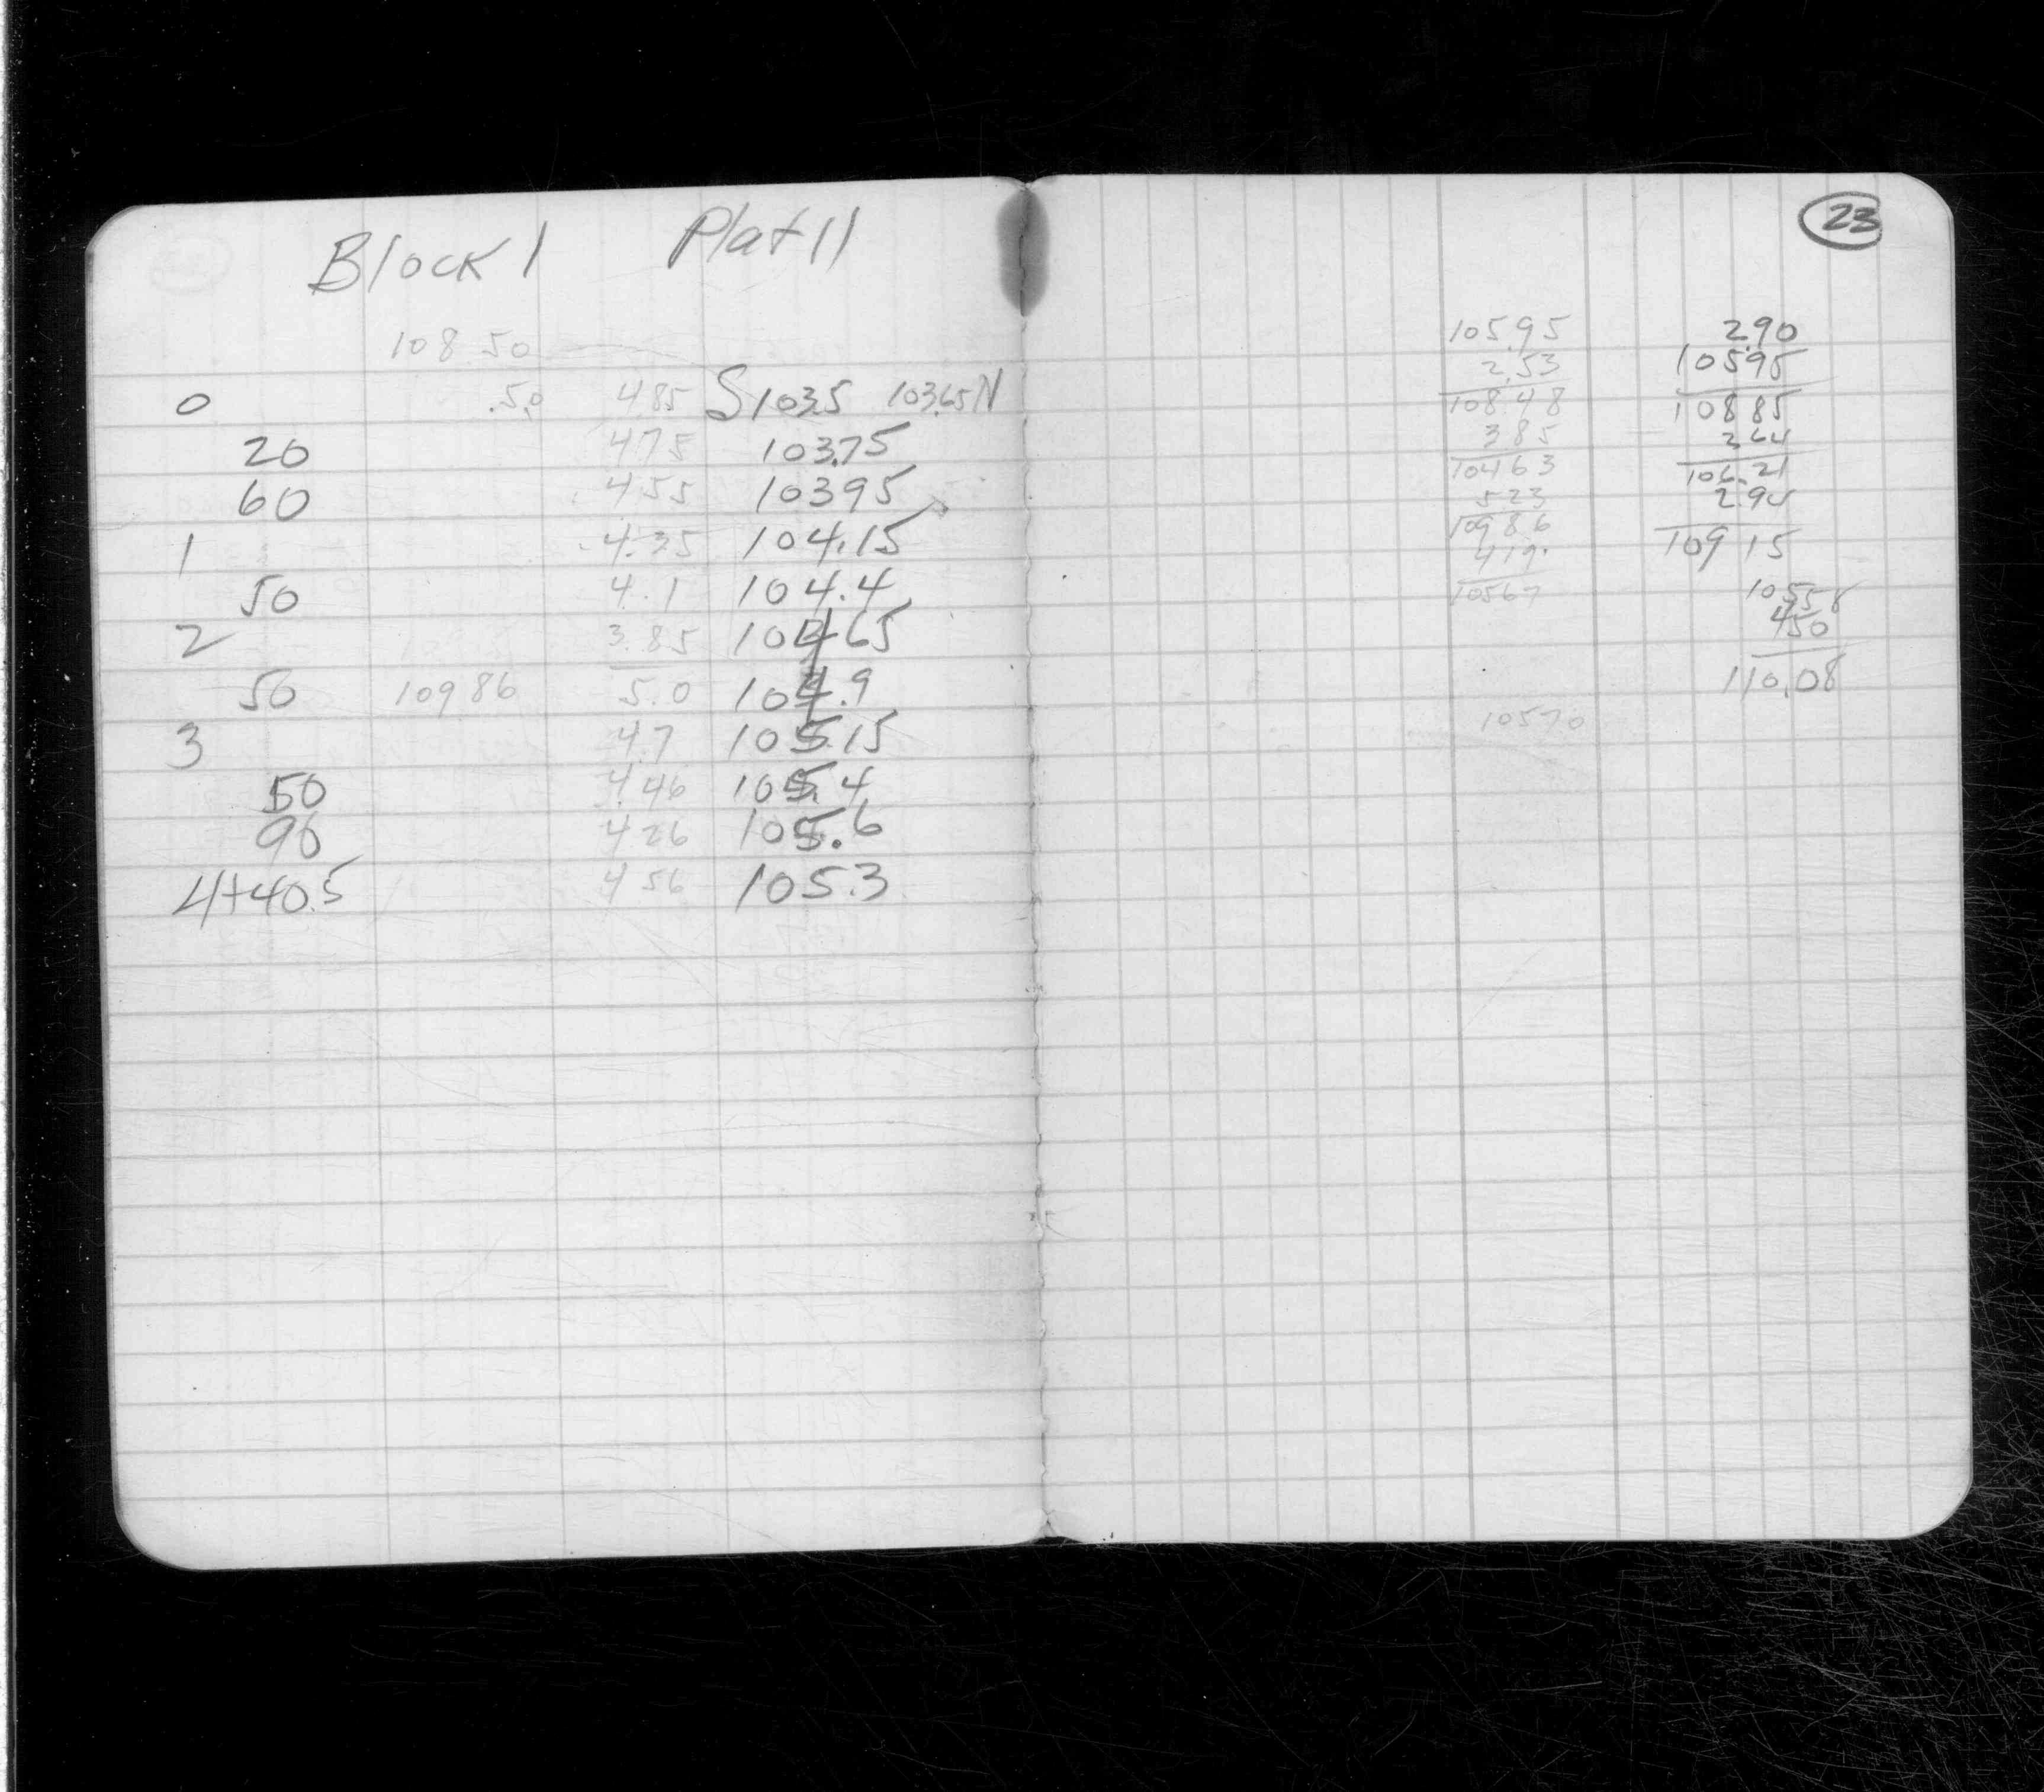 Block 1 Plat 11
108.50
0 .50 4.85 S 103.5 103.65 N
20 4.75 103.75
60 4.55 103.95
1 4.35 104.15
50 4.1 104.4
2 3.85 104.65
50 109.86 5.0 104.9
3 4.7 105.15
50 4.46 105.4
90 4.26 105.6
4+40.5 4.56 105.3
23
105.95
2.53
108.48
3 85
104 63
5 23
109 86
4 19
105 67
105 70
2.90
105 95
108 85
2 64
106.21
2.94
109 15
105 58
4 50
110.08